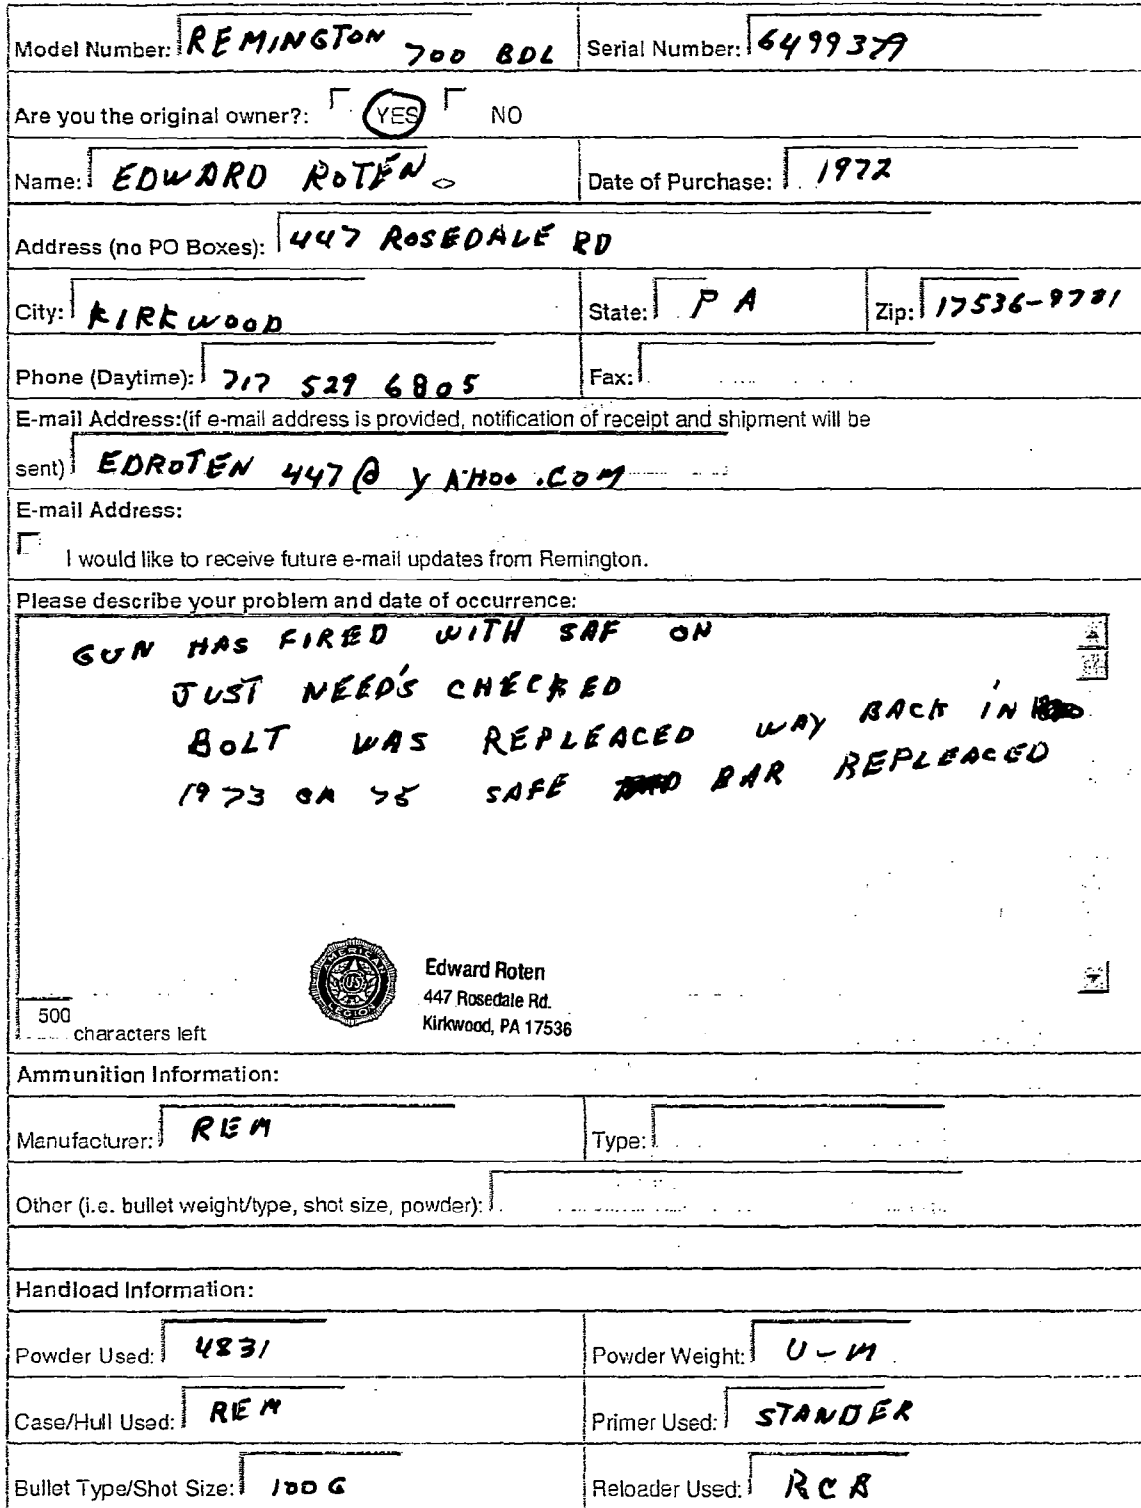 Model Number: REMINGTON 700 BDL Serial Number: 6499379
Are you the original owner?: YES NO
Name: EDWARD ROTEN Date of Purchase: 1972
Address (no PO Boxes): 447 ROSEDALE RD
City: KIRKWOOD State: PA Zip: 17536-9781
Phone (Daytime): 717 529 6805 Fax:
E-mail Address:(if e-mail address is provided, notification of receipt and shipment will be
sent) EDROTEN 447@YAHOO.COM
E-mail Address:
I would like to receive future e-mail updates from Remington.
Please describe your problem and date of occurrence:
GUN HAS FIRED WITH SAF ON
JUST NEED'S CHECKED
BOLT WAS REPLEACED WAY BACK IN
1973 OR 75 SAFE BAR REPLEACED
AMERICAN
US
LEGION
Edward Roten
447 Rosedale Rd.
Kirkwood, PA 17536
500
characters left
Ammunition Information:
Manufacturer: REM Type:
Other (i.e. bullet weight/type, shot size, powder):
Handload Information:
Powder Used: 4831 Powder Weight: U-M
Case/Hull Used: REM Primer Used: STANDER
Bullet Type/Shot Size: 100 G Reloader Used: RCB